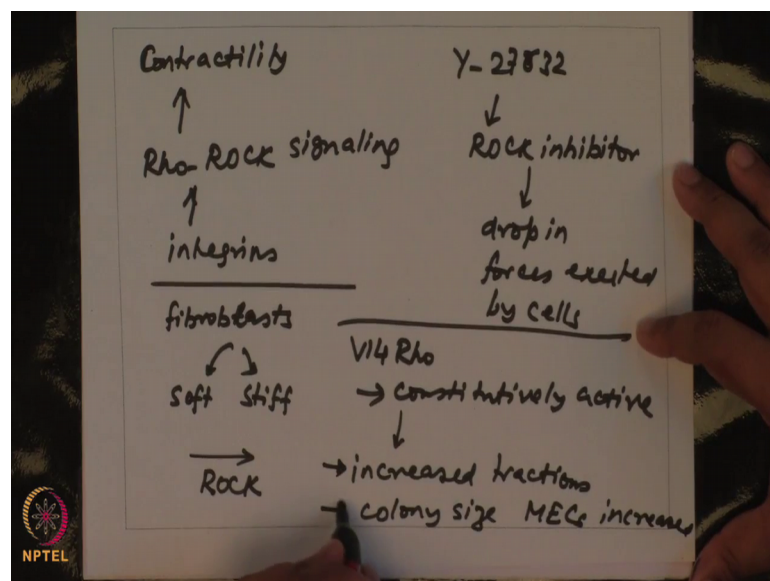 Contractility
Rho-ROCK signaling
integrins
Y-27832
ROCK inhibitor
drop in
forces exerted
by cells
fibroblasts
Soft Stiff
ROCK
V14 Rho
→ Constitutively active
→ increased tractions
→ colony size MECs increased
NPTEL